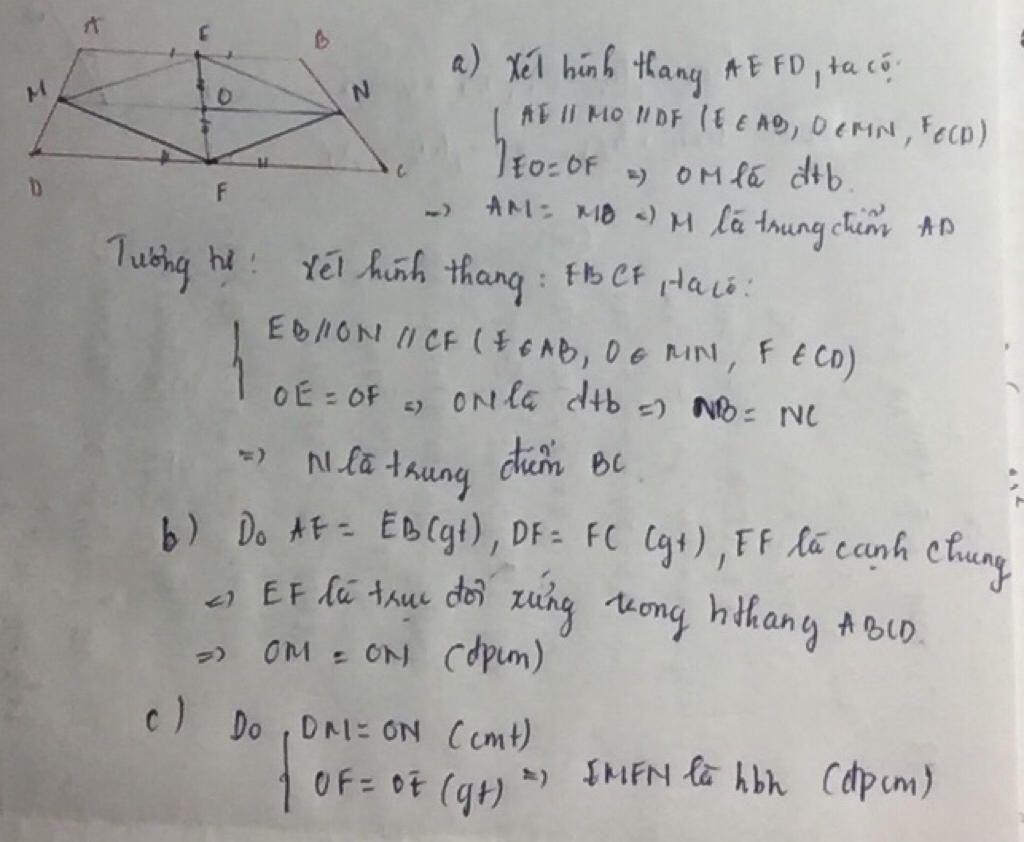 A E B
M O N
D F C
a) Xét hình thang AEFD, ta có:
AE // MO // DF (E ∈ AB, O ∈ MN, F ∈ CD)
EO = OF => OM là đtb.
=> AM = MD => M là trung điểm AD
Tương tự: Xét hình thang: EBCF, ta có:
EB // ON // CF (E ∈ AB, O ∈ MN, F ∈ CD)
OE = OF => ON là đtb => NB = NC
=> N là trung điểm BC
b) Do AE = EB (gt), DF = FC (gt), EF là cạnh chung
=> EF là trục đối xứng trong hthang ABCD.
=> OM = ON (đpcm)
c) Do OM = ON (cmt)
OF = OE (gt) => EMFN là hbh (đpcm)